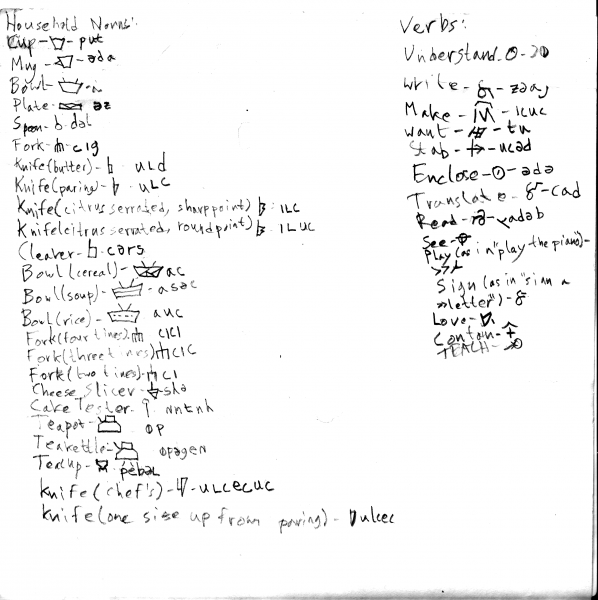 Household Nouns:
Cup - put
Mug - əda
Bowl -
Plate - əz
Spoon - dəl
Fork - cig
Knife (butter) - uld
Knife (paring) - ulc
Knife (citrus serrated, sharp point) ilc
Knife (citrus serrated, round point) iluc
Cleaver - cars
Bowl (cereal) - ac
Bowl (soup) - asac
Bowl (rice) - auc
Fork (four tines) cici
Fork (three tines) cic
Fork (two tines) - ci
Cheese Slicer - sha
Cake Tester - nntnh
Teapot - op
Teakettle - opagen
Teacup - pebal
Knife (chef's) - ulcecuc
Knife (one size up from paring) - ulcec
Verbs:
Understand -
Write - zəaj
Make - icuc
Want - tu
Stab - ucad
Enclose - ədə
Translate - cad
Read - adəb
See -
Play (as in "play the piano") -
Sign (as in "sign a
letter") -
Love -
Contain -
TEACH -